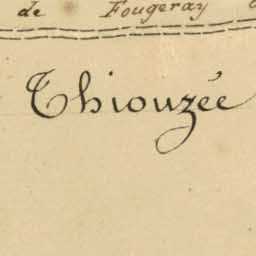 de Fougeray
Thiouzée